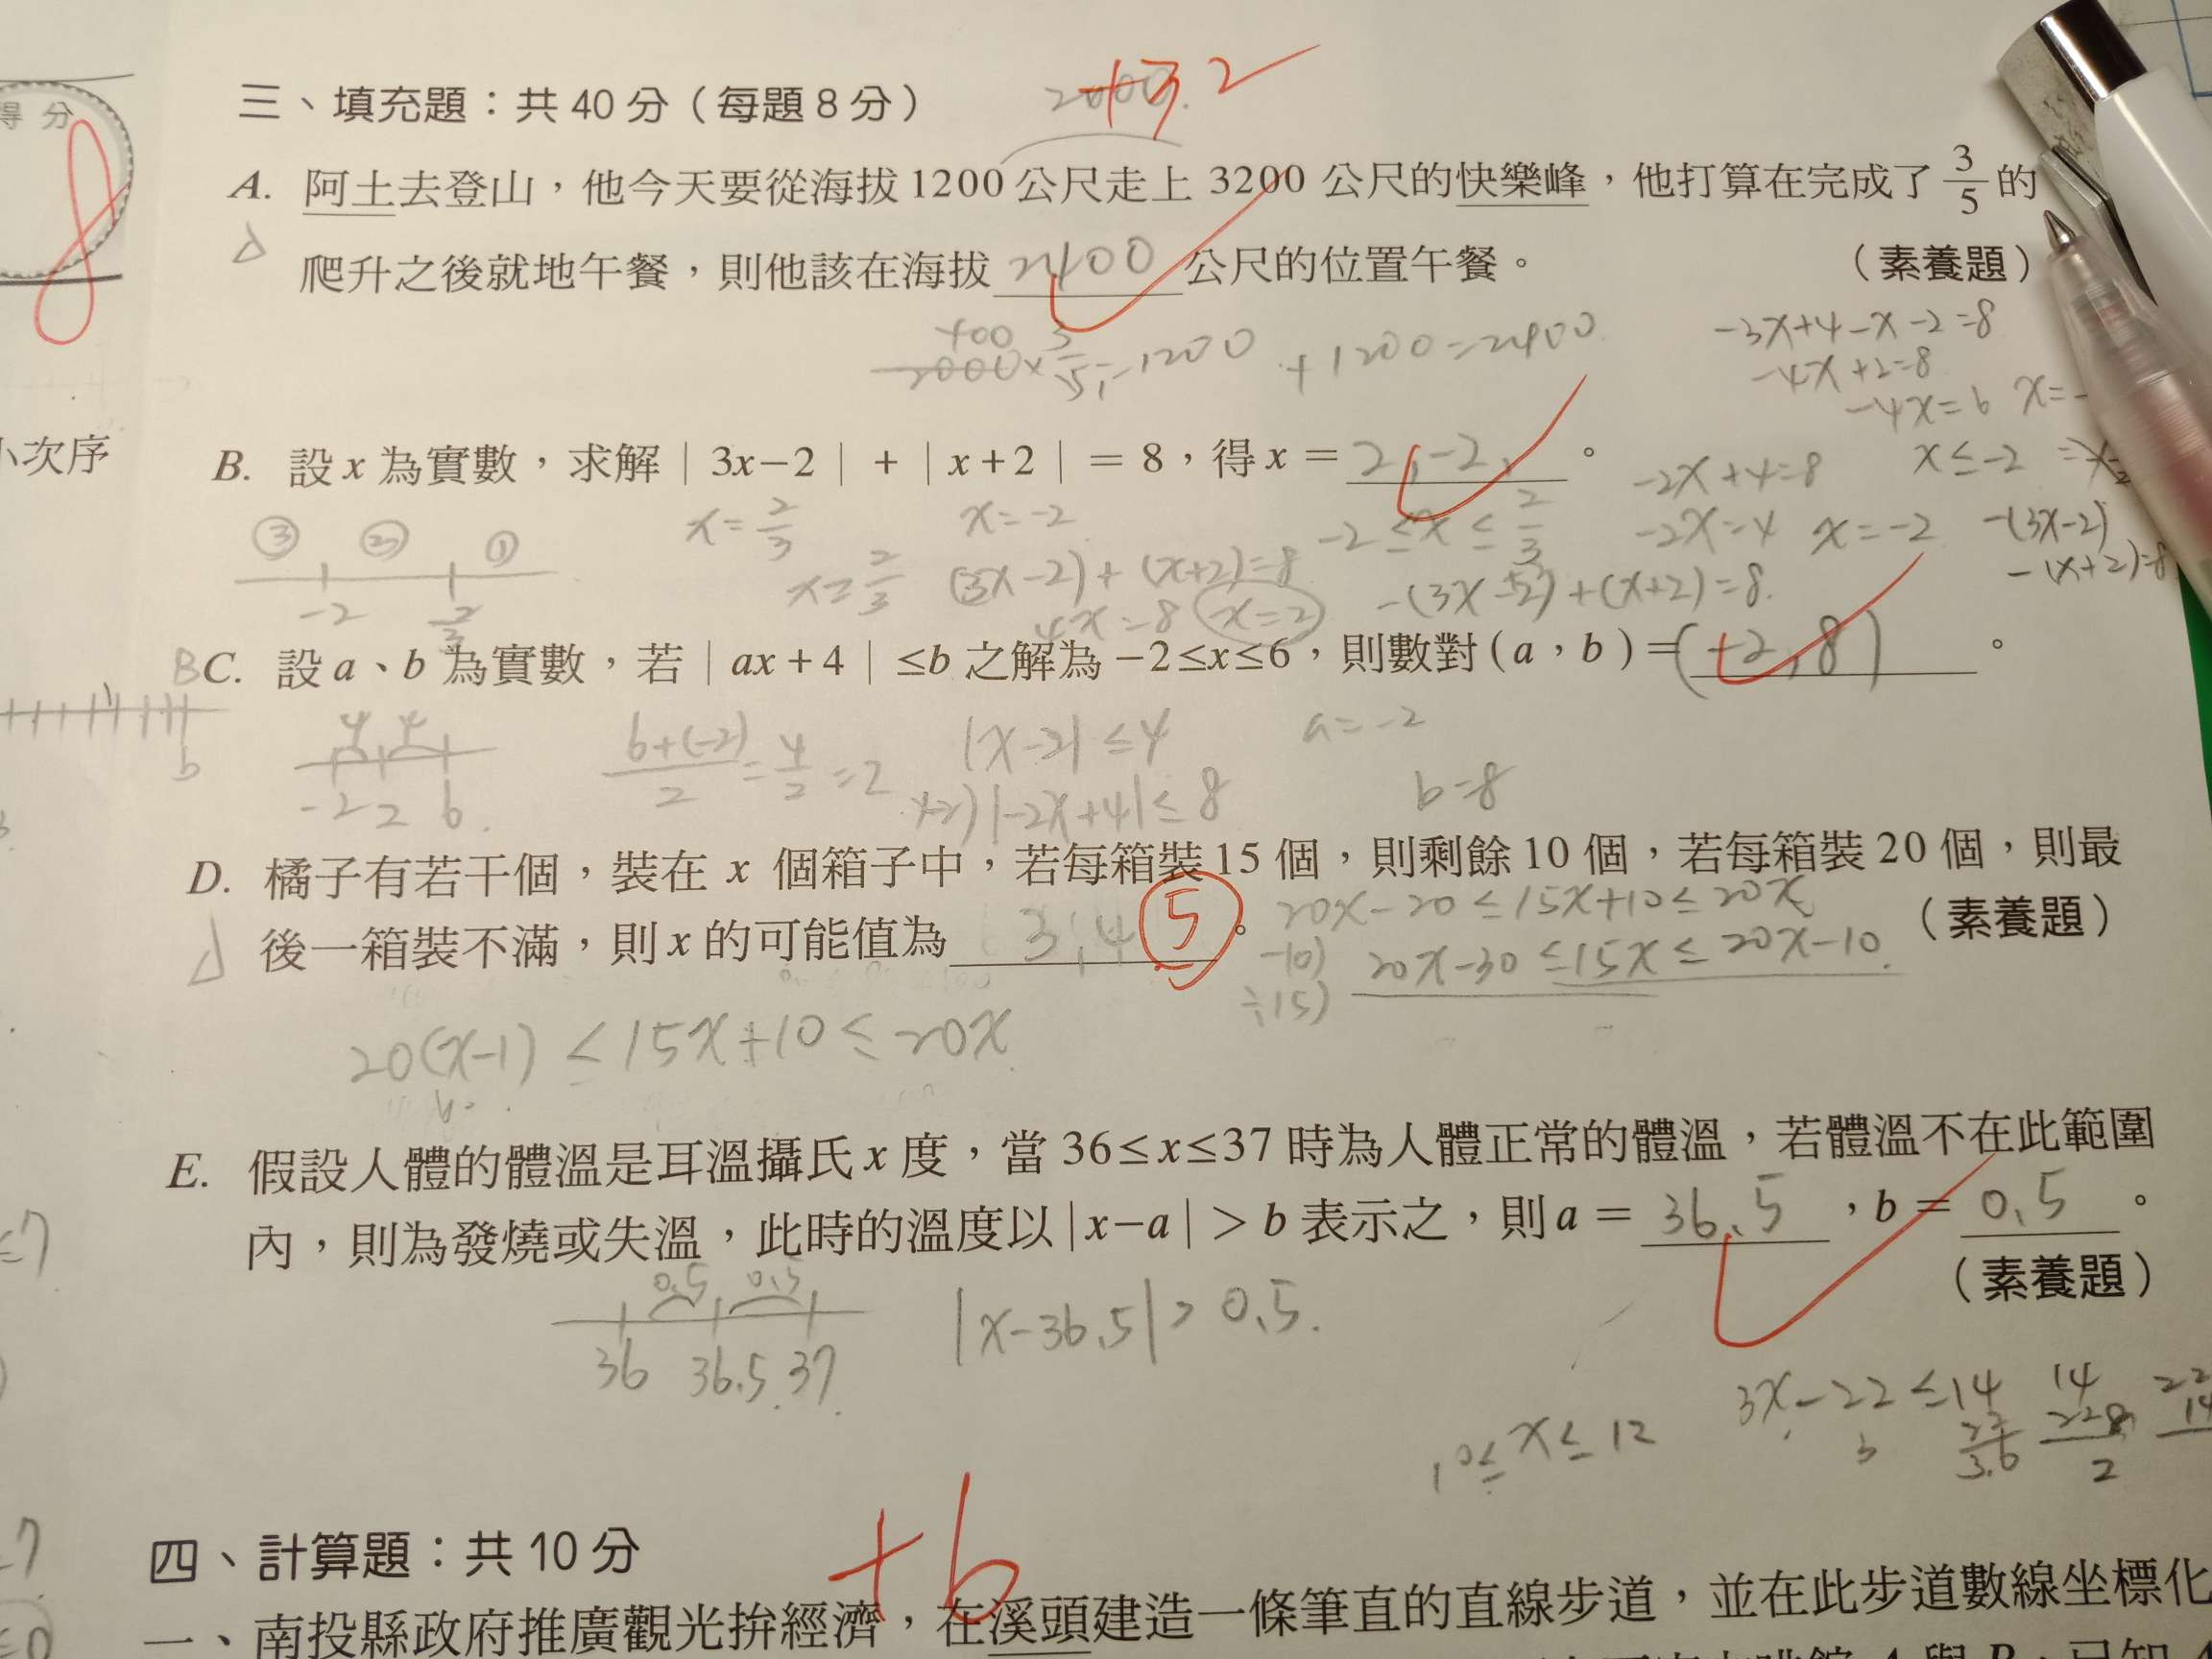 得分
8
三、填充題：共 40 分（每題 8 分）
+32
A. 阿土去登山，他今天要從海拔 1200 公尺走上 3200 公尺的快樂峰，他打算在完成了 3/5 的
爬升之後就地午餐，則他該在海拔 2400 公尺的位置午餐。
（素養題）
400
2000×3/5=1200 +1200=2400
-3x+4-x-2=8
-4x+2=8
-4x=6 x=-
小次序
B. 設 x 為實數，求解 | 3x−2 | + | x+2 | = 8，得 x = 2,-2, 。
-2x+4=8
x≤-2
③ ② ①
x=2/3 x=-2
-2≤x≤2/3
-2x=4 x=-2
-(3x-2)
-(x+2)=8
-2 2/3
x≥2/3 (3x-2)+(x+2)=8
4x=8 x=2
-(3x-2)+(x+2)=8.
BC. 設 a、b 為實數，若 | ax+4 | ≤b 之解為 −2≤x≤6，則數對 ( a，b ) = (-2,8) 。
4 4
-2 2 6.
6+(-2)/2=4/2=2
|x-2|≤4
×2) |-2x+4|≤8
a=-2
b=8
D. 橘子有若干個，裝在 x 個箱子中，若每箱裝 15 個，則剩餘 10 個，若每箱裝 20 個，則最
後一箱裝不滿，則 x 的可能值為 3,4 5 。
（素養題）
20x-20≤15x+10≤20x
-10) 20x-30≤15x≤20x-10.
÷15)
20(x-1)≤15x+10≤20x
E. 假設人體的體溫是耳溫攝氏 x 度，當 36≤x≤37 時為人體正常的體溫，若體溫不在此範圍
內，則為發燒或失溫，此時的溫度以 |x−a| > b 表示之，則 a = 36.5 ，b = 0.5 。
（素養題）
0.5 0.5
36 36.5 37
|x-36.5|>0.5.
3x-22≤14
10≤x≤12
四、計算題：共 10 分
+6
一、南投縣政府推廣觀光拚經濟，在溪頭建造一條筆直的直線步道，並在此步道數線坐標化